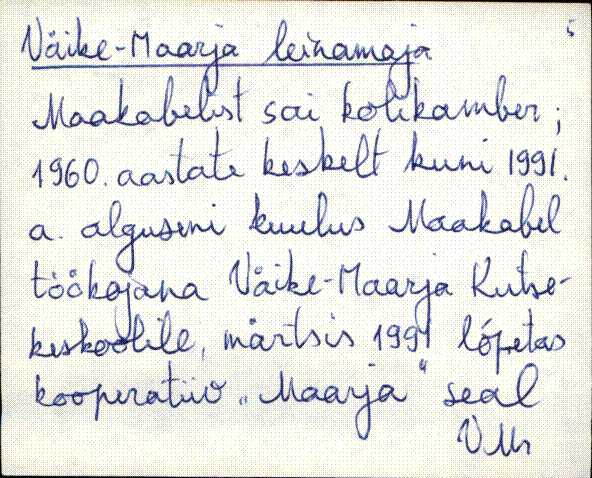 Väike-Maarja leinamaja 5
Maakabelist sai kolikamber;
1960. aastate keskelt kuni 1991.
a. alguseni kuulus Maakabel
töökojana Väike-Maarja Kutse-
keskoolile, märtsis 1991 lõpetas
kooperatiiv „Maarja" seal
VMs